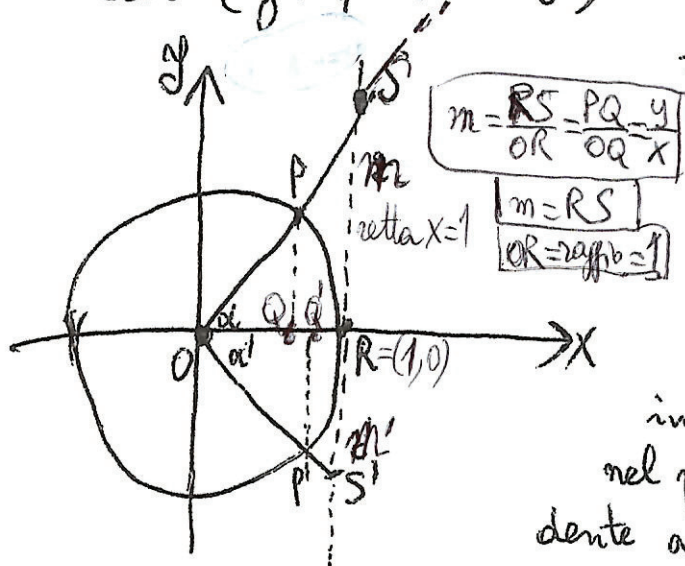 y
S
m = RS/OR = PQ/OQ = y/x
P
m
retta x=1
m = RS
OR = raggio = 1
α
Q
Q'
O
α'
R=(1,0)
X
m'
P'
S'
nel
dente